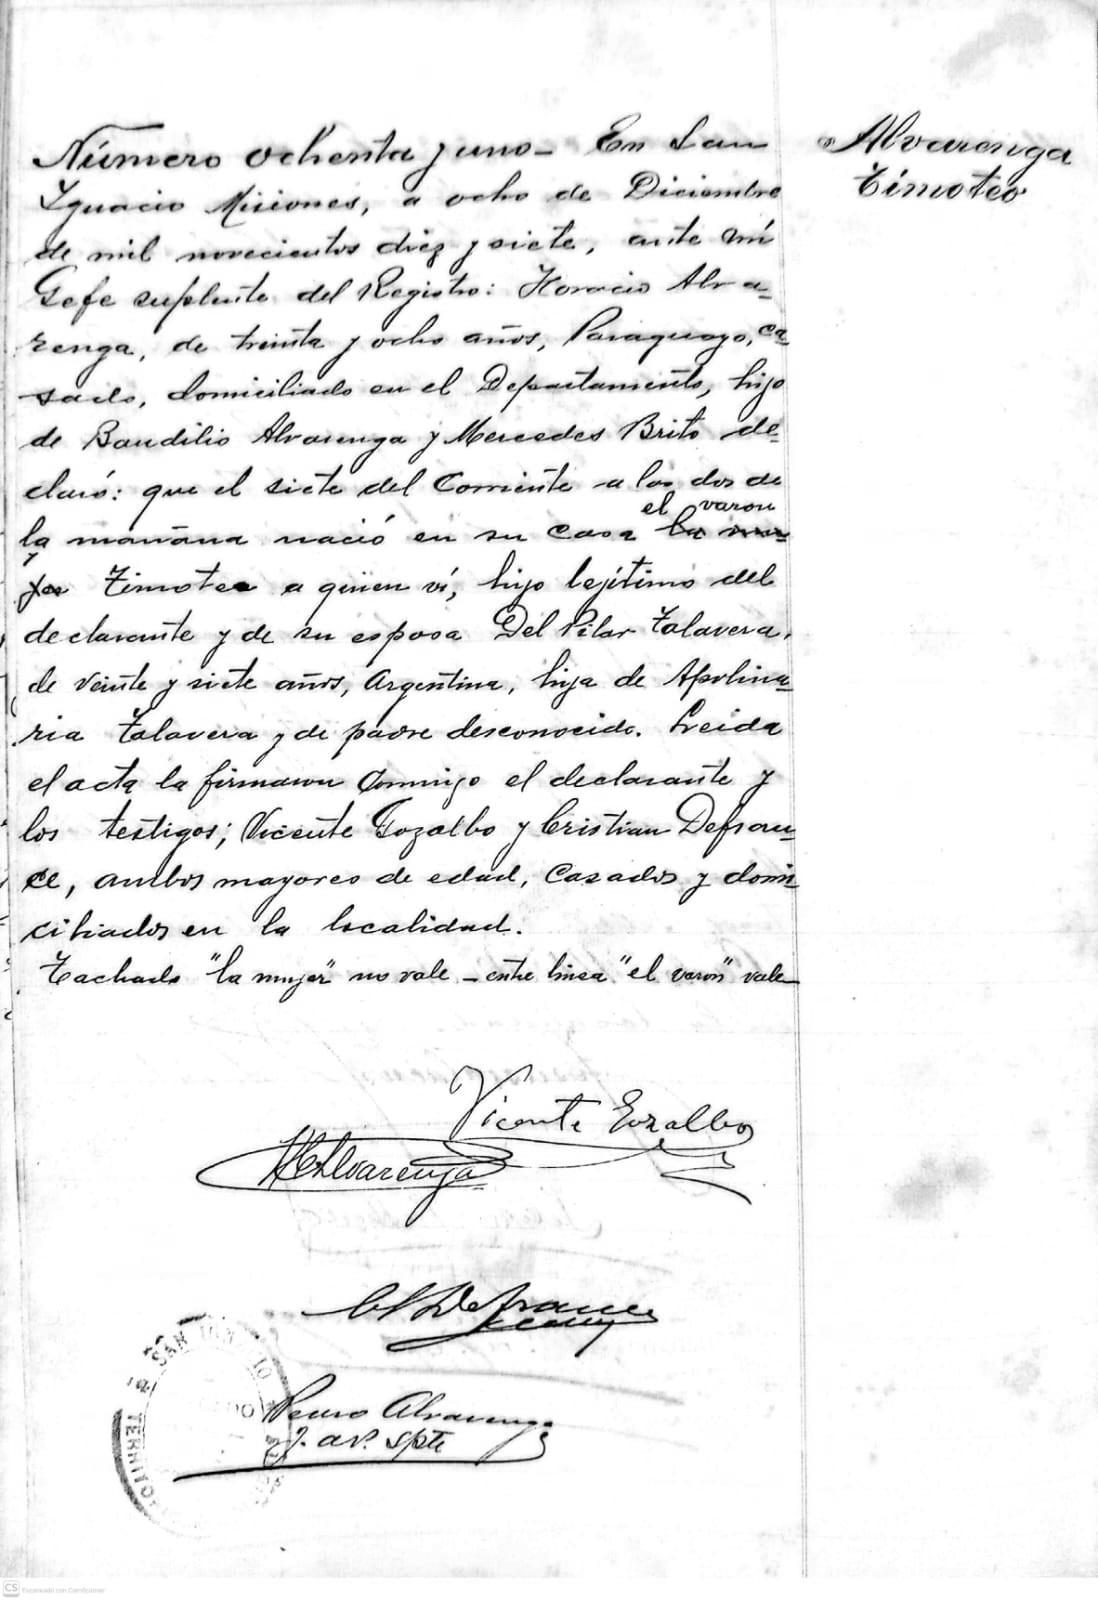 Número ochenta y uno - En San
Ygnacio Misiones, a ocho de Diciembre
de mil novecientos diez y siete, ante mí
Gefe suplente del Registro: Horacio Alva-
renga, de treinta y ocho años, Paraguayo, ca-
sado, domiciliado en el Departamento, hijo
de Baudilio Alvarenga y Mercedes Brito de-
claró: que el siete del Corriente a las dos de
el varon
la mañana nació en su casa la mu-
jer Timoteo a quien ví, hijo lejítimo del
declarante y de su esposa Del Pilar Talavera,
de veinte y siete años, Argentina, hija de Apolina-
ria Talavera y de padre desconocido. Leida
el acta la firmaron Conmigo el declarante y
los testigos; Vicente Gozalbo y Cristian Defran-
ce, ambos mayores de edad, Casados y domi
ciliados en la localidad.
Tachado "la mujer" no vale - entre linea "el varon" vale
Alvarenga
Timoteo
Vicente Gozalbo
H Alvarenga
Defrance
Pedro Alvarenga
spte
SAN IGNACIO
TERRITORIO
CS Escaneado con CamScanner